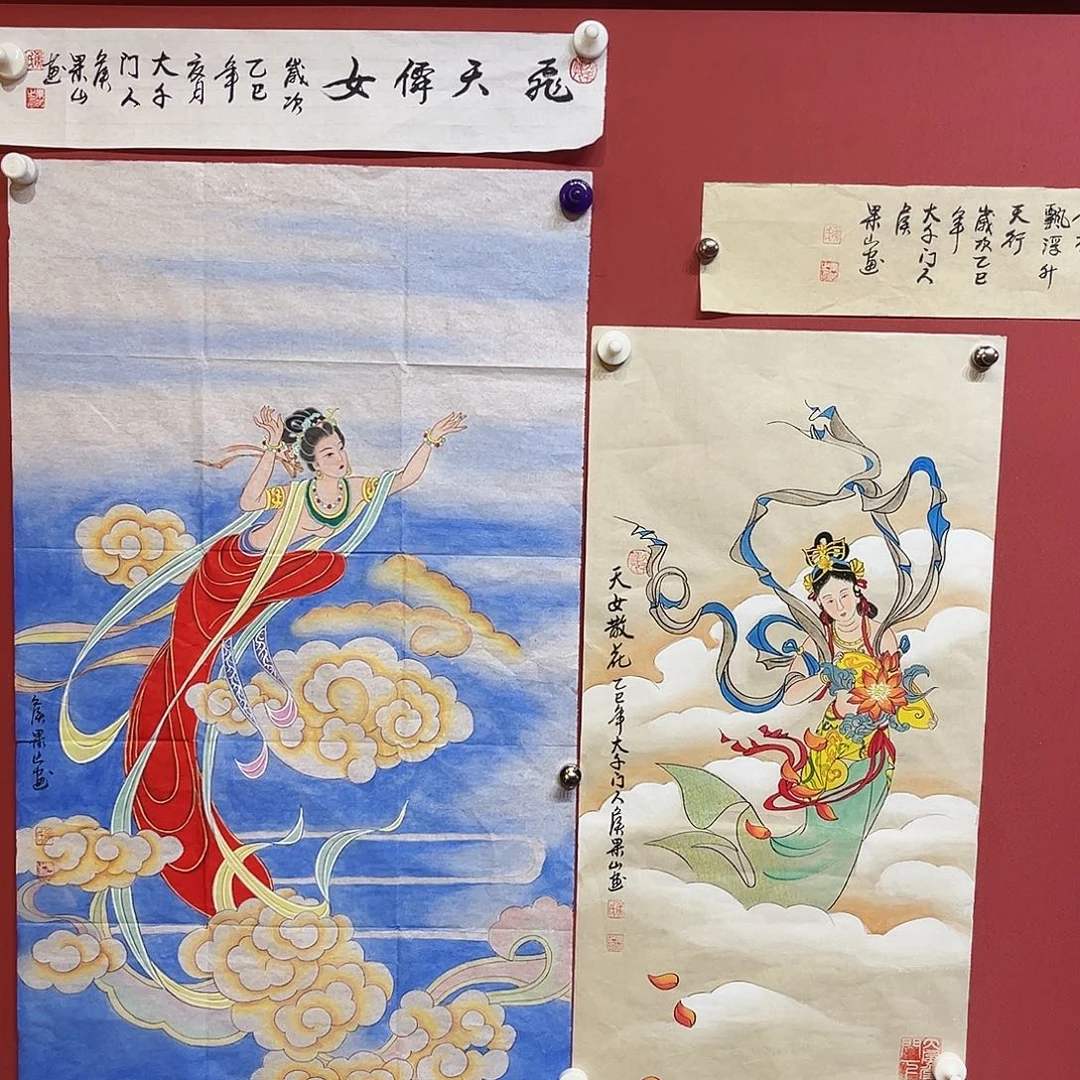 飛天僊女
歲次
乙巳
年
大千
门人
侯
果山
画
飄浮升
天行
歲次乙巳
年
大千门人
侯
果山畫
侯果山畫
天女散花 乙巳年大千门人侯果山画